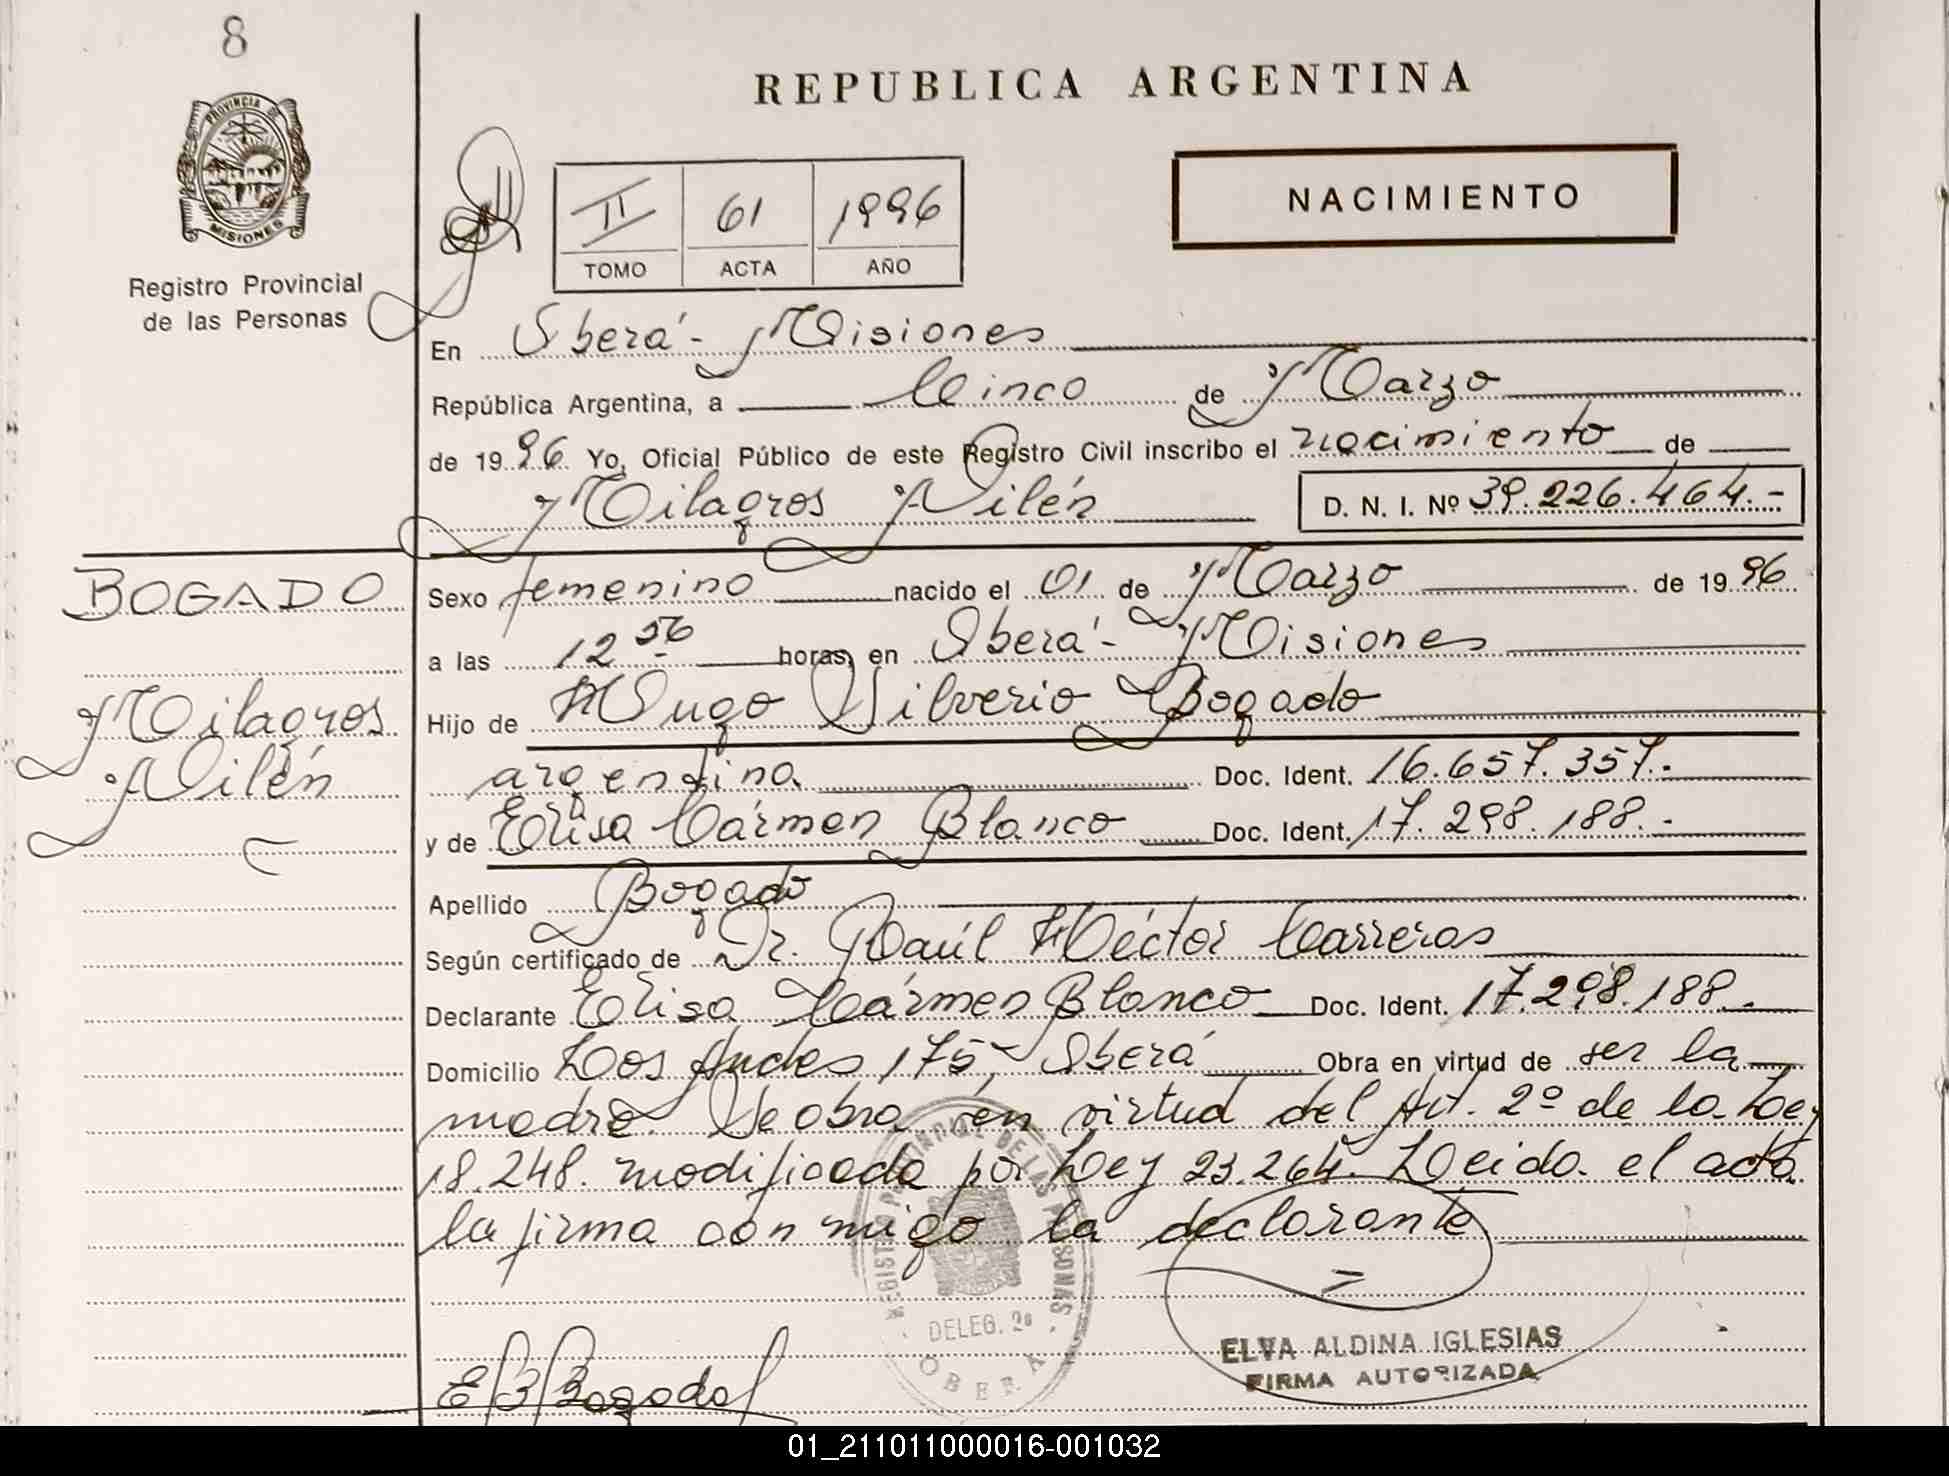 8
REPUBLICA ARGENTINA
PROVINCIA DE
MISIONES
Registro Provincial
de las Personas
II 61 1996
TOMO ACTA AÑO
NACIMIENTO
En Oberá - Misiones
República Argentina, a Cinco de Marzo
de 1996 Yo, Oficial Público de este Registro Civil inscribo el nacimiento de
Milagros Ailén D. N. I. Nº 39.226.464.-
BOGADO
Milagros
Ailén
Sexo femenino nacido el 01 de Marzo de 1996
a las 12 56 horas, en Oberá - Misiones
Hijo de Hugo Silverio Bogado
argentina Doc. Ident. 16.657.357.-
y de Elisa Cármen Blanco Doc. Ident. 17.298.188.-
Apellido Bogado
Según certificado de Dr. Raúl Héctor Carreras
Declarante Elisa Cármen Blanco Doc. Ident. 17.298.188.-
Domicilio Los Andes 175, Oberá Obra en virtud de ser la
madre. Se obra en virtud del Art. 2º de la Ley
18.248. modificada por Ley 23.264. Leida el acta
la firma con migo la declarante
REGISTRO PROVINCIAL DE LAS PERSONAS
DELEG. 2a
OBERA
ELVA ALDINA IGLESIAS
FIRMA AUTORIZADA
E B Bogado
01_211011000016-001032